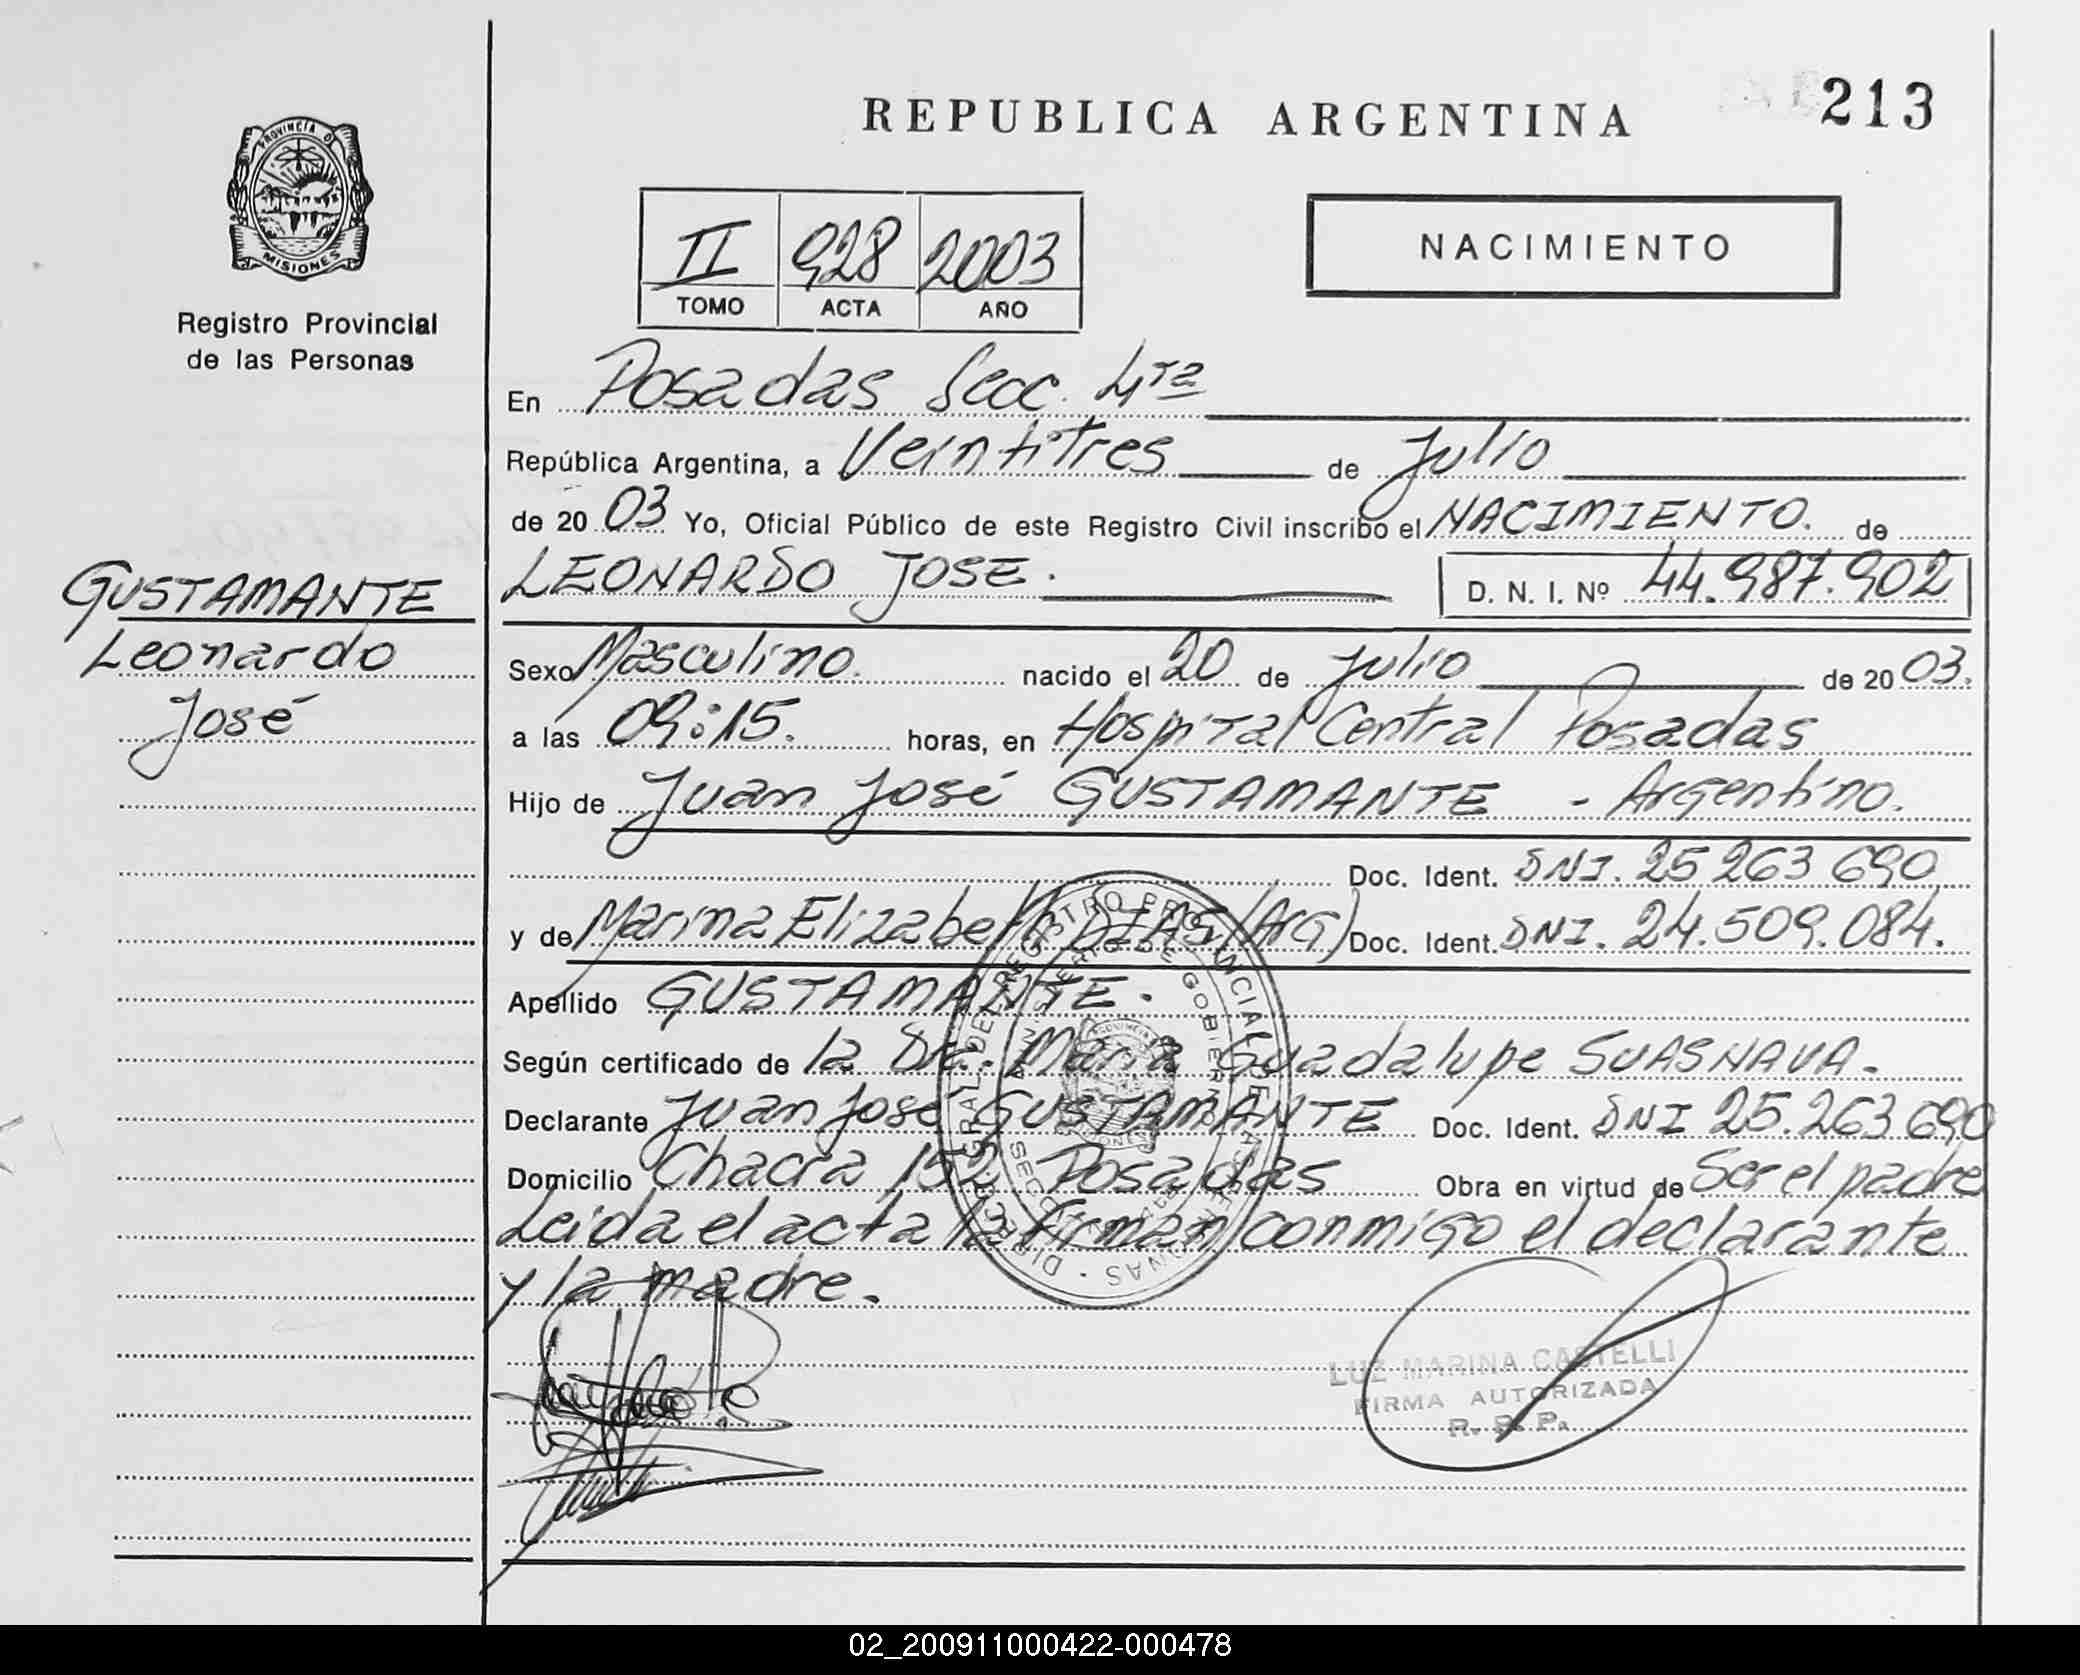 213
REPUBLICA ARGENTINA
PROVINCIA DE
MISIONES
Registro Provincial
de las Personas
II 928 2003
TOMO ACTA AÑO
NACIMIENTO
En Posadas Secc. 4ta
República Argentina, a Veintitres de Julio
de 2003 Yo, Oficial Público de este Registro Civil inscribo el NACIMIENTO. de
LEONARDO JOSE. D. N. I. Nº 44.987.902
GUSTAMANTE
Leonardo
José
Sexo Masculino. nacido el 20 de Julio de 2003.
a las 09:15. horas, en Hospital Central Posadas
Hijo de Juan José GUSTAMANTE - Argentino.
Doc. Ident. DNI. 25 263 690
y de Marina Elizabeth DIAS (ARG) Doc. Ident. DNI. 24.509.084.
Apellido GUSTAMANTE.
Según certificado de la Dra. María Guadalupe SUASNAVA.
Declarante Juan José GUSTAMANTE Doc. Ident. DNI 25.263 690
Domicilio Chacra 152 Posadas Obra en virtud de Ser el padre
Leida el acta la firman conmigo el declarante
y la madre.
LUZ MARINA CASTELLI
FIRMA AUTORIZADA
R. P. P.
02_200911000422-000478